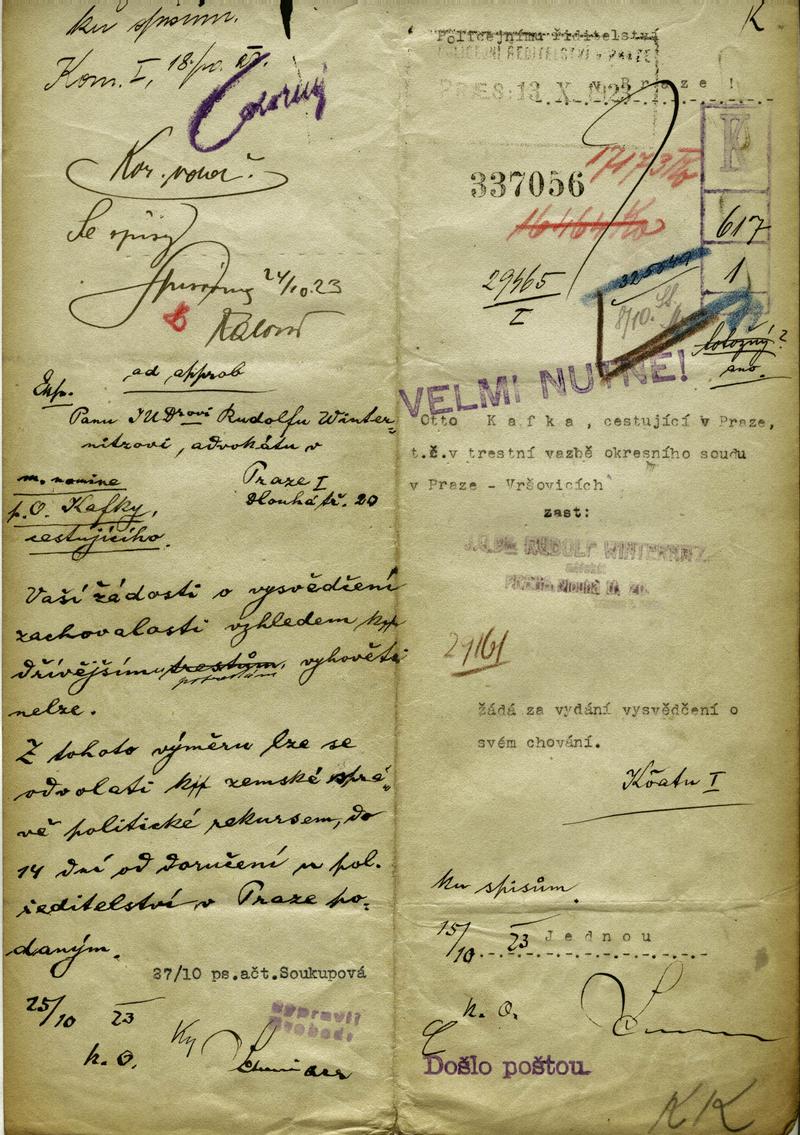 ku spisům.
Kom. I, 18/10 23.
Kor. voda.
Se spisy
24/10.23
ad approb
Exp.
Panu JUDrovi Rudolfu Winter-
nitzovi, advokátu v
m. nomine
Praze I
p. O. Kafky,
Dlouhá tř. 20
cestujícího.
Vaší žádosti o vysvědčení
zachovalosti vzhledem ku
dřívějšímu trestům, vyhověti
potrestání
nelze.
Z tohoto výměru lze se
odvolati ku zemské sprá-
vě politické rekursem, do
14 dní od doručení u pol.
ředitelství v Praze po-
daným.
27/10 ps.ačt.Soukupová
25/10 23
vypraviti
k. O.
K
Policejnímu ředitelství
POLICEJNÍ ŘEDITELSTVÍ V PRAZE
v Praze !
PRAES: 13. X. 1923
K
337056
17173/IV
16464 Ko
617
29465
I
1
8/10.
totožný?
ano.
VELMI NUTNÉ!
Otto Kafka, cestující v Praze,
t.č.v trestní vazbě okresního soudu
v Praze - Vršovicích
zast:
J.U.DR. RUDOLF WINTERNITZ
advokát
PRAHA, Dlouhá tř. 20.
29161
žádá za vydání vysvědčení o
svém chování.
I
ku spisům.
15/10 23
Jednou
k. O.
Došlo poštou.
KK